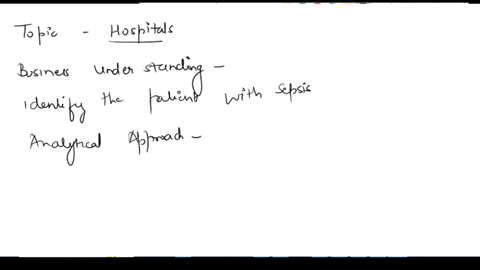 Topic - Hospitals
Business Understanding -
Identify the patient with Sepsis
Analytical Approach -